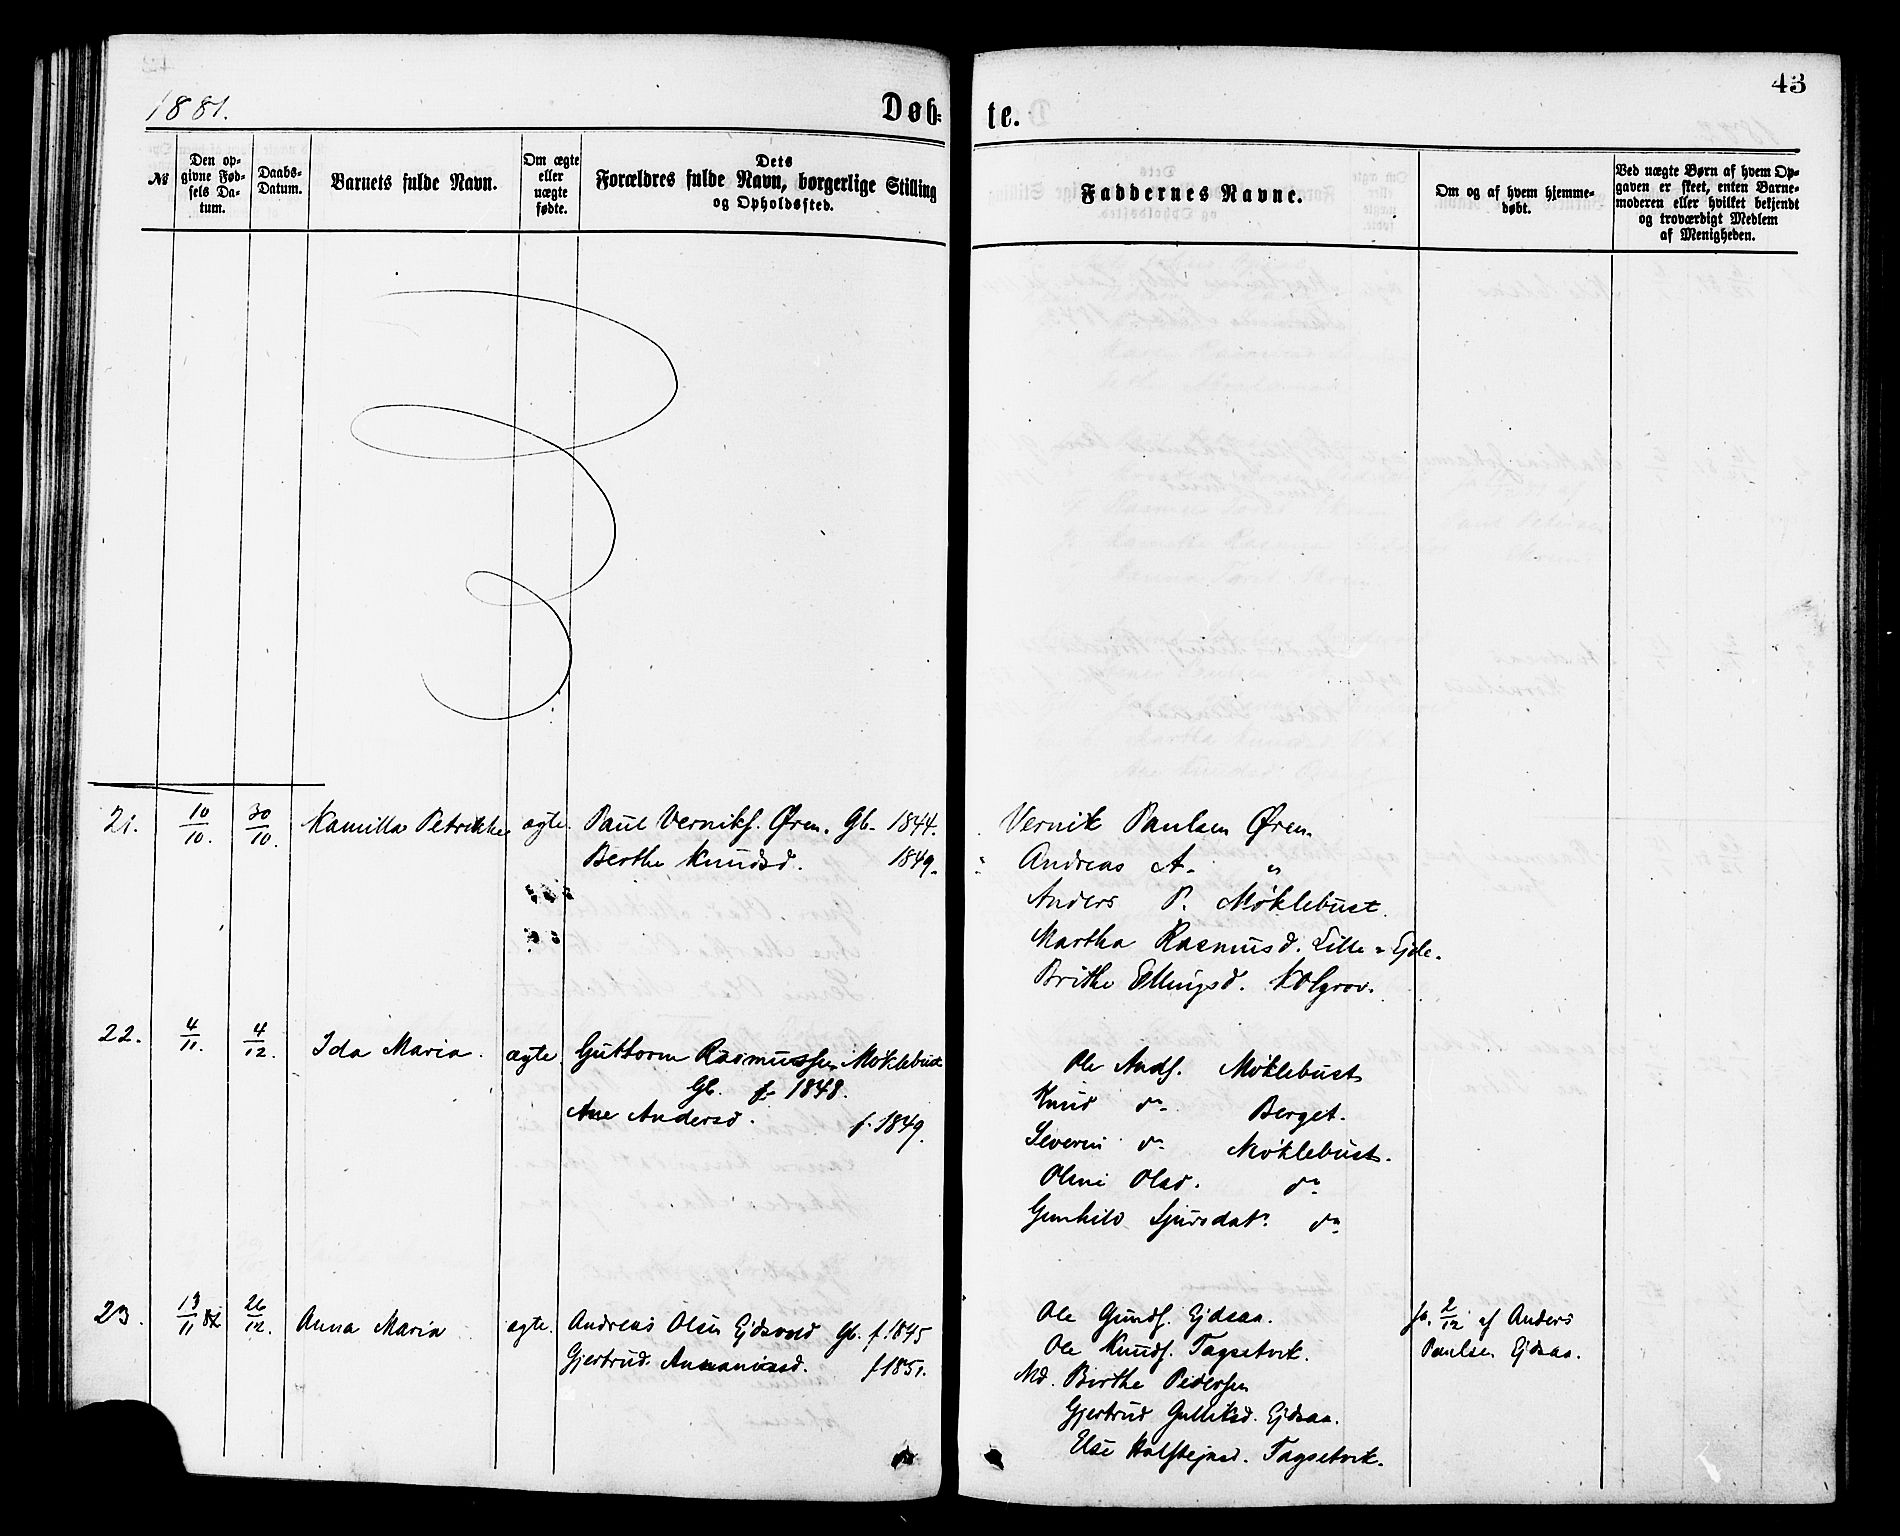 1881.
Døb-
te.
43
№
Den op-
givne Fød-
sels Da-
tum.
Daabs-
Datum.
Barnets fulde Navn.
Om ægte
eller
uægte
fødte.
Dets
Forældres fulde Navn, borgerlige Stilling
og Opholdssted.
Faddernes Navne.
Om og af hvem hjemme-
døbt.
Ved uægte Børn af hvem Op-
gaven er skeet, enten Barne-
moderen eller hvilket bekjendt
og troværdigt Medlem
af Menigheden.
21. 10/10. 30/10. Kamilla Petrikke ægte. PaulVerniks. Øren. Gb. 1844.
Berthe Knudsd. 1849.
Vernik Paulsen Øren.
Andreas A. "
Anders P. Møklebust.
Martha Rasmusd. Lille-Ejde.
Brithe Ellingsd. Kolgrov.
22. 4/11. 4/12. Ida Maria. ægte. Guttorm Rasmussen Møklebust
Gb. f. 1848.
Ane Andersd. f. 1849.
Ole Ands. Møklebust
Knud do. Berget.
Severin do. Møklebust.
Oline Olsd. do.
Gunhild Sjursdatr. do.
23. 13/11 81 26/12. Anna Maria ægte. Andreas Olsen Ejdsvold Gb. f. 1845
Gjertrud Ananiasd. f. 1851.
Ole Gunds. Ejdsaa.
Ole Knuds. Tagsetvik.
Md. Birthe Pedersen
Gjertrud Gulliksd. Ejdsaa.
Else Halstejnsd. Tagsetvik.
ja. 2/12 af Anders
Paulsen Ejdsaa.